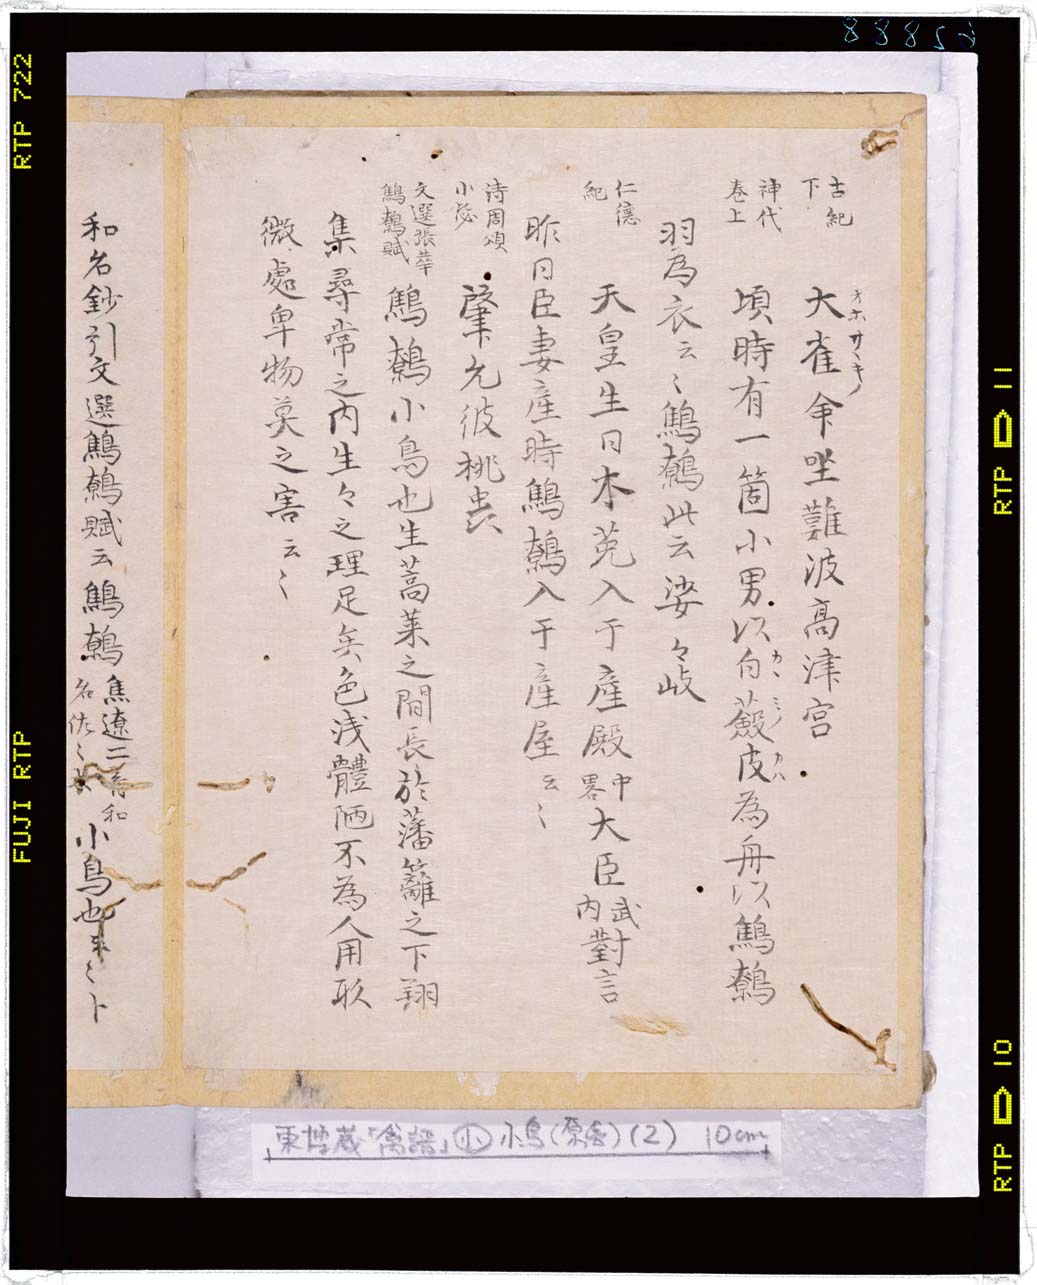 古紀
下
大雀命坐難波高津宮
オホサヽキノ
神代
巻上
頃時有一箇小男以白蘞皮為舟以鷦鷯
カヽミノカハ
羽為衣云〻鷦鷯此云娑々岐
仁徳
紀
天皇生日木菟入于産殿中畧大臣武内對言
昨日臣妻産時鷦鷯入于産屋云〻
詩周頌
小毖
肇允彼桃虫
文選張華
鷦鷯賦
鷦鷯小鳥也生蒿萊之間長於藩籬之下翔
集尋常之内生々之理足矣色浅體陋不為人用形
微處卑物莫之害云〻
和名鈔引文選鷦鷯賦云鷦鷯焦遼二音和名佐〻木小鳥也
東博蔵「禽譜」小 小鳥(原色)(2) 10cm
RTP 722
FUJI RTP
RTP 11
RTP 10